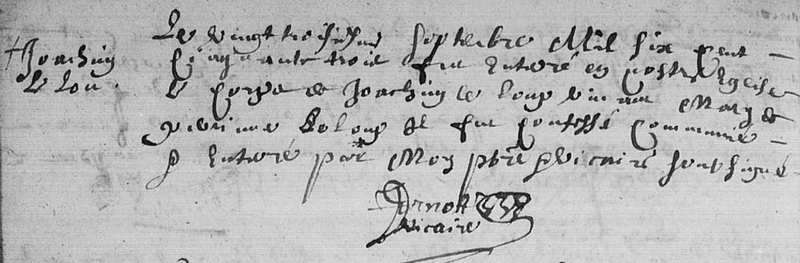 † Joaching
Le Lou
Le vingt troisiesme Septebre Mil six cent
cinquante trois fut Enteré en nostre Eglise
Le corps de Joaching Le Loup vivant Mary de
Perrinne Le Loup et fut confessé Communié
Enteré par Moy pbre Vicaire soubsigné
Vicaire